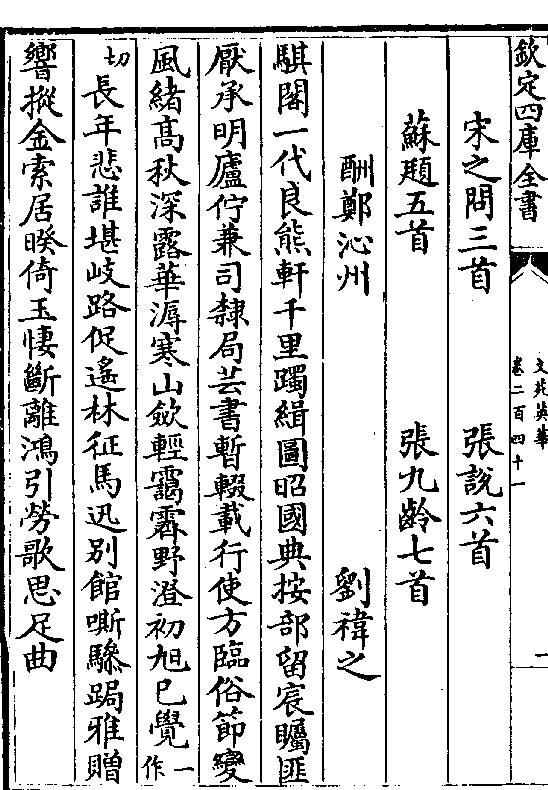 欽定四庫全書
文苑英華
卷二百四十一
一
宋之問三首 張說六首
蘇頲五首 張九齡七首
酬鄭沁州 劉禕之
騏閣一代良熊軒千里躅緝圖昭國典按部留宸矚匪
厭承明廬佇兼司隸局芸書暫輟載行使方臨俗節變
風緒高秋深露華溽寒山歛輕靄霽野澄初旭已覺一作
切長年悲誰堪岐路促遙林征馬迅别館嘶驂跼雅贈
響摐金索居暌倚玉悽斷離鴻引勞歌思足曲